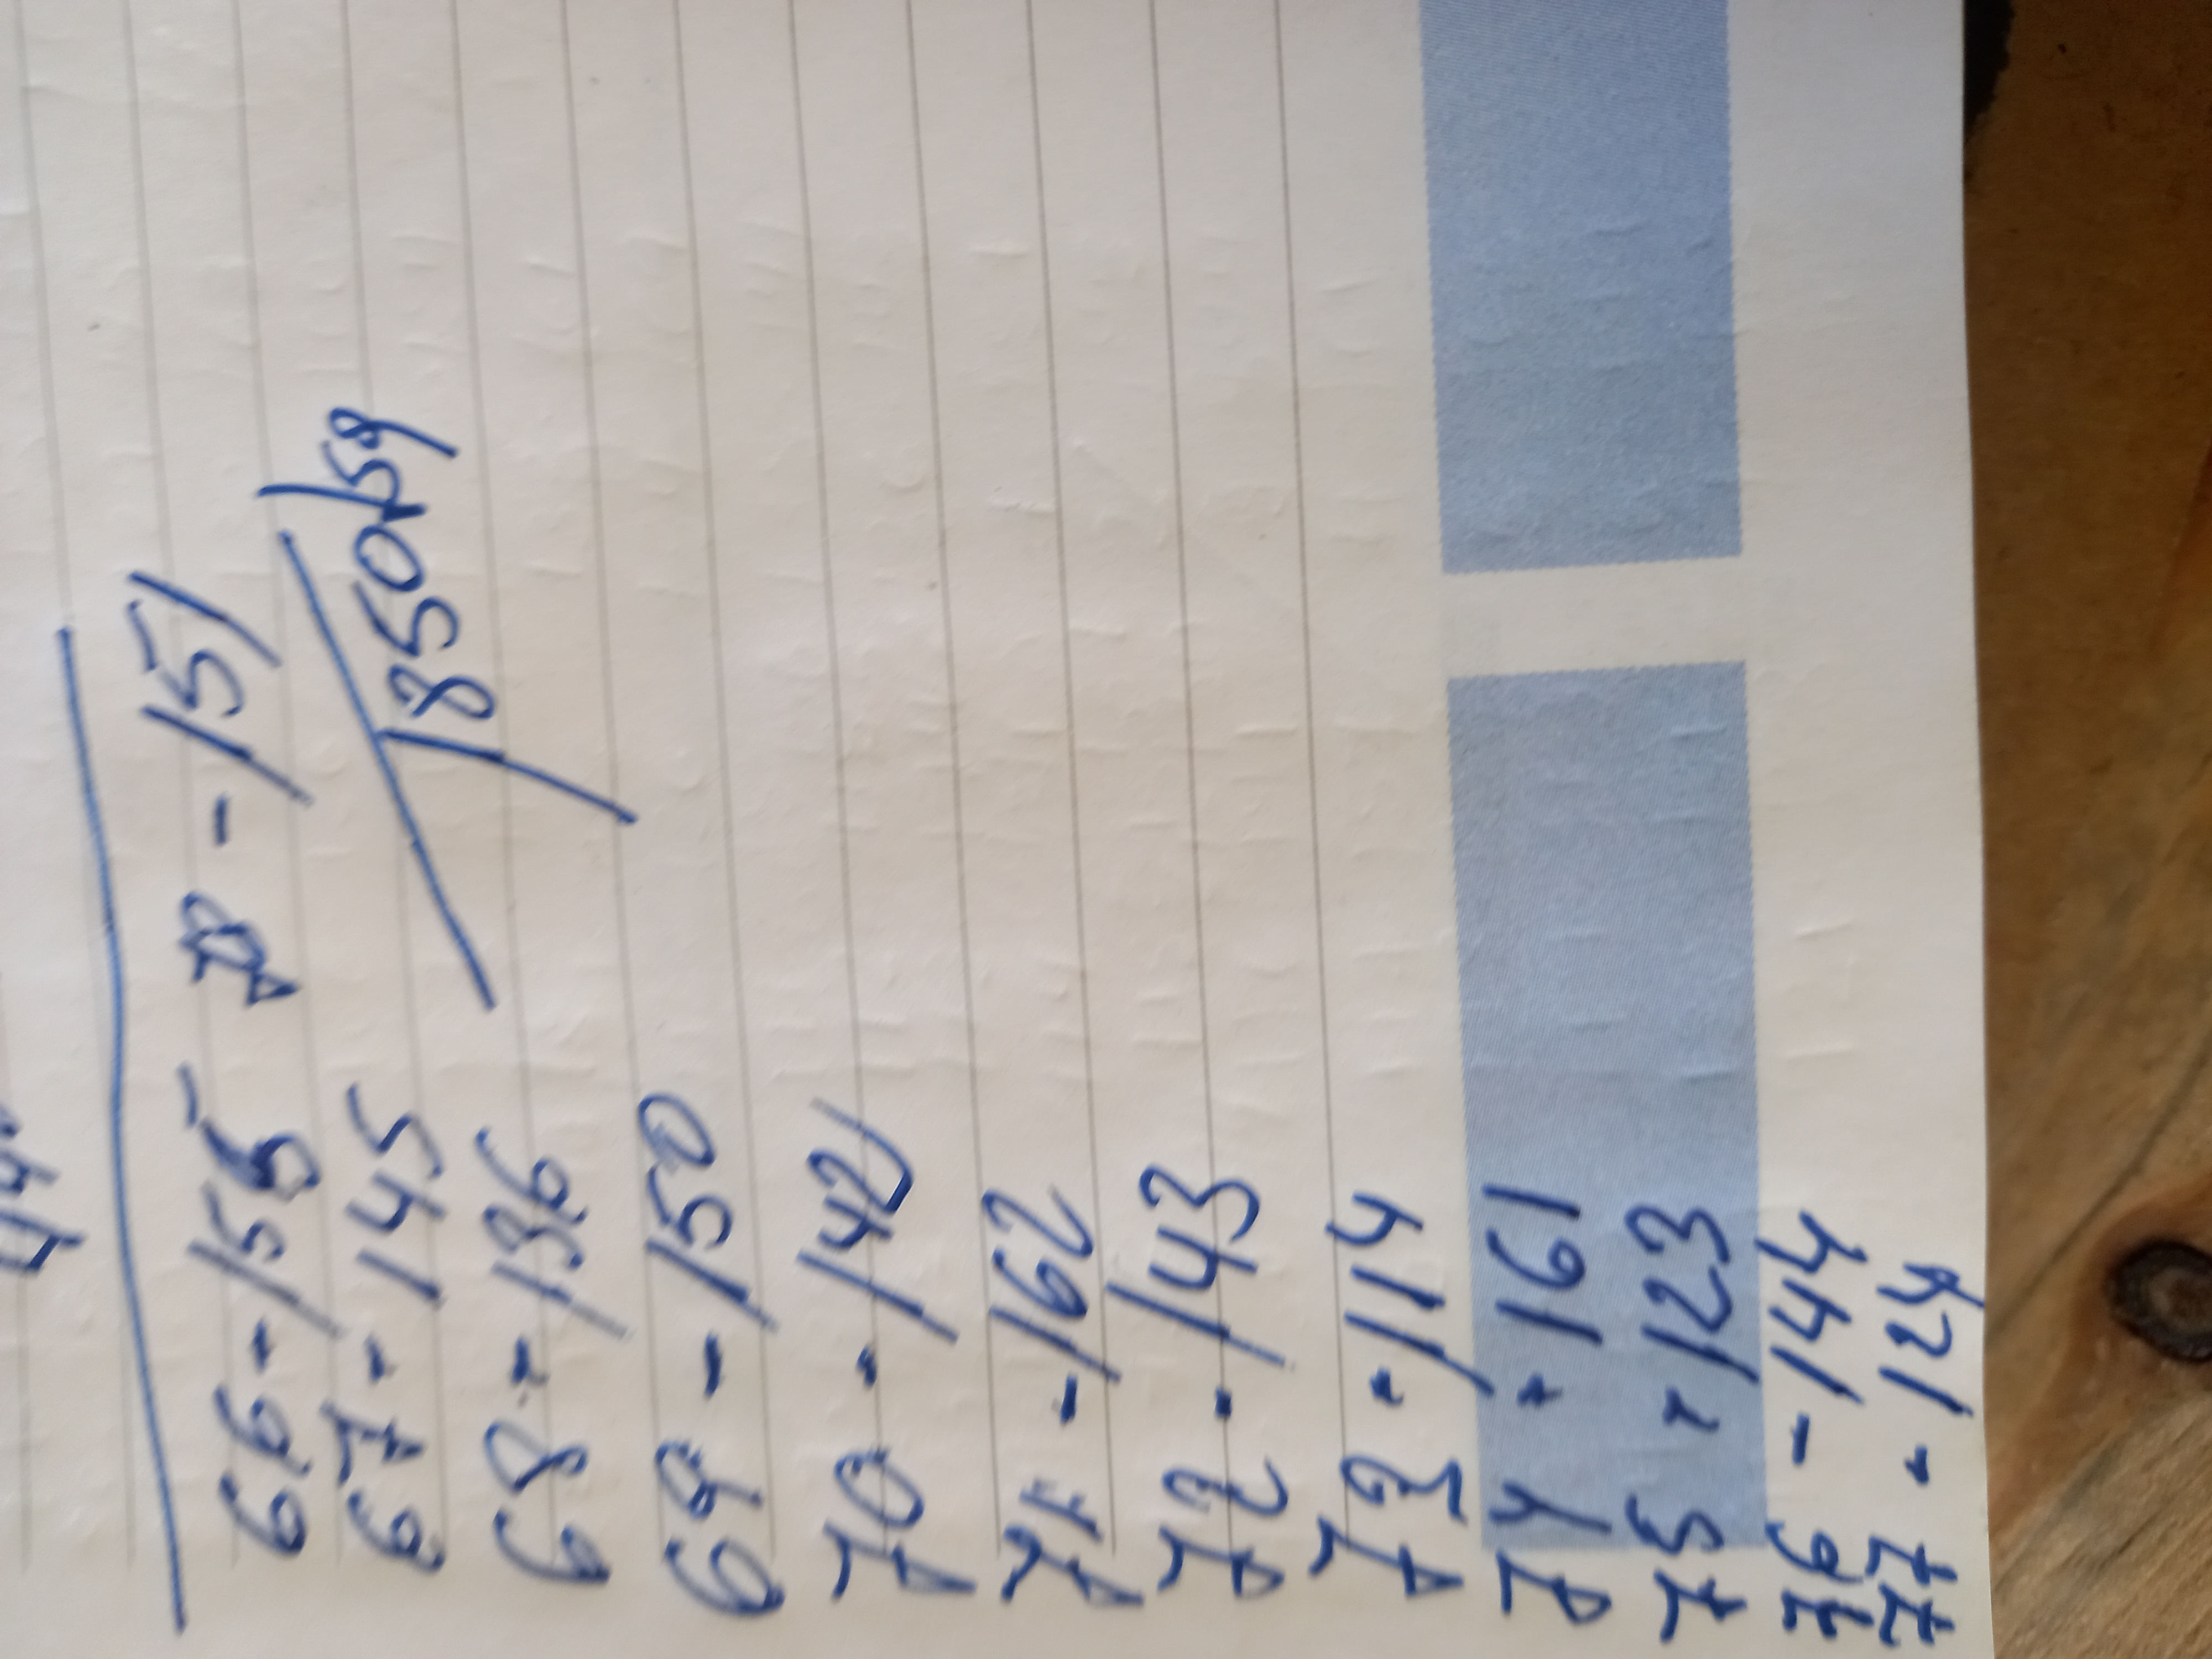 44
66-155 78-151
67-145 1850/59
68-136
69-150
70-142
71-162
72-143
73-114
74-161
75-123
76-144
77-124